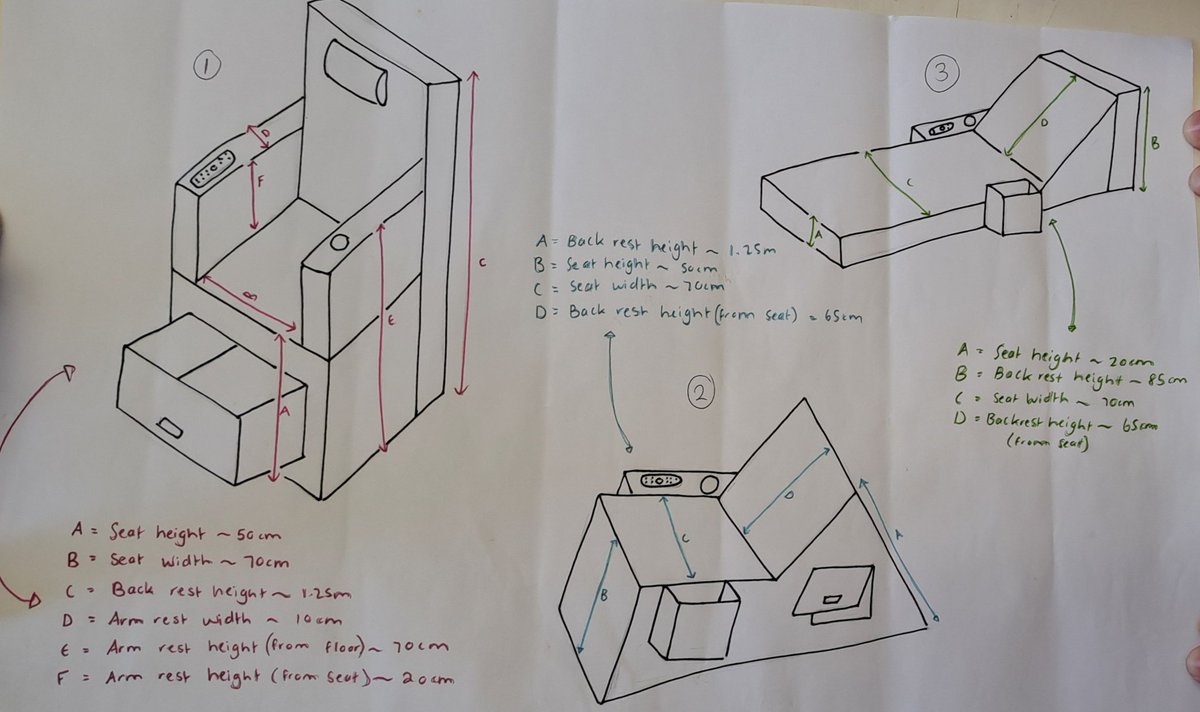 1
D
F
B
C
E
A
A = Seat height ~ 50cm
B = Seat width ~ 70cm
C = Back rest height ~ 1.25m
D = Arm rest width ~ 10cm
E = Arm rest height (from floor) ~ 70cm
F = Arm rest height (from seat) ~ 20cm
A = Back rest height ~ 1.25m
B = Seat height ~ 50cm
C = Seat width ~ 70cm
D = Back rest height (from seat) = 65cm
2
D
C
B
A
3
D
B
C
A
A = Seat height ~ 20cm
B = Back rest height ~ 85cm
C = Seat width ~ 70cm
D = Backrest height ~ 65cm
(from seat)